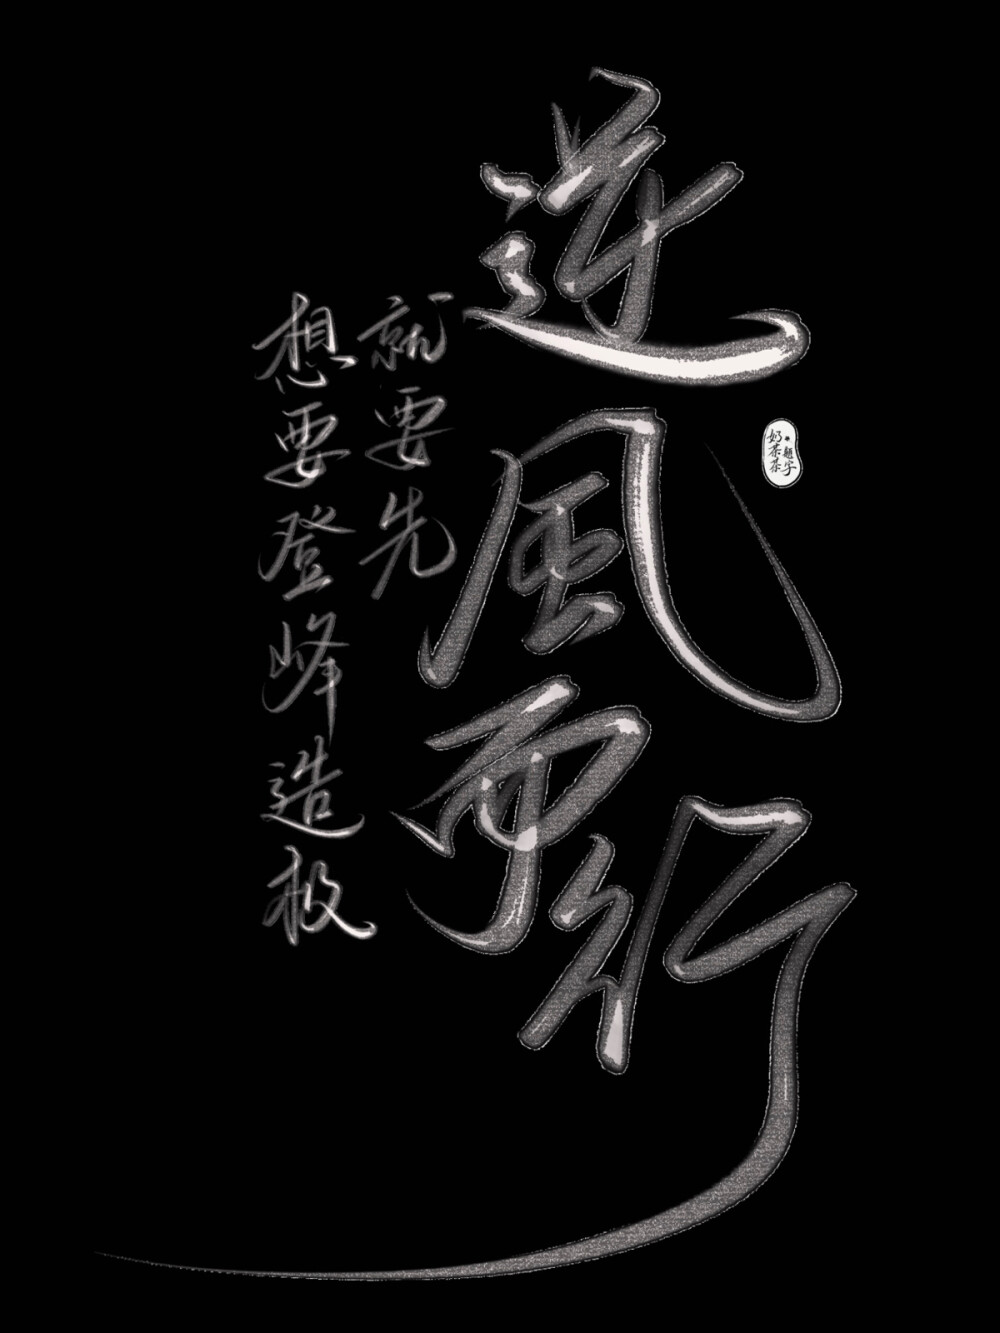 想要登峰造极
就要先
逆風而行
奶茶茶
题字